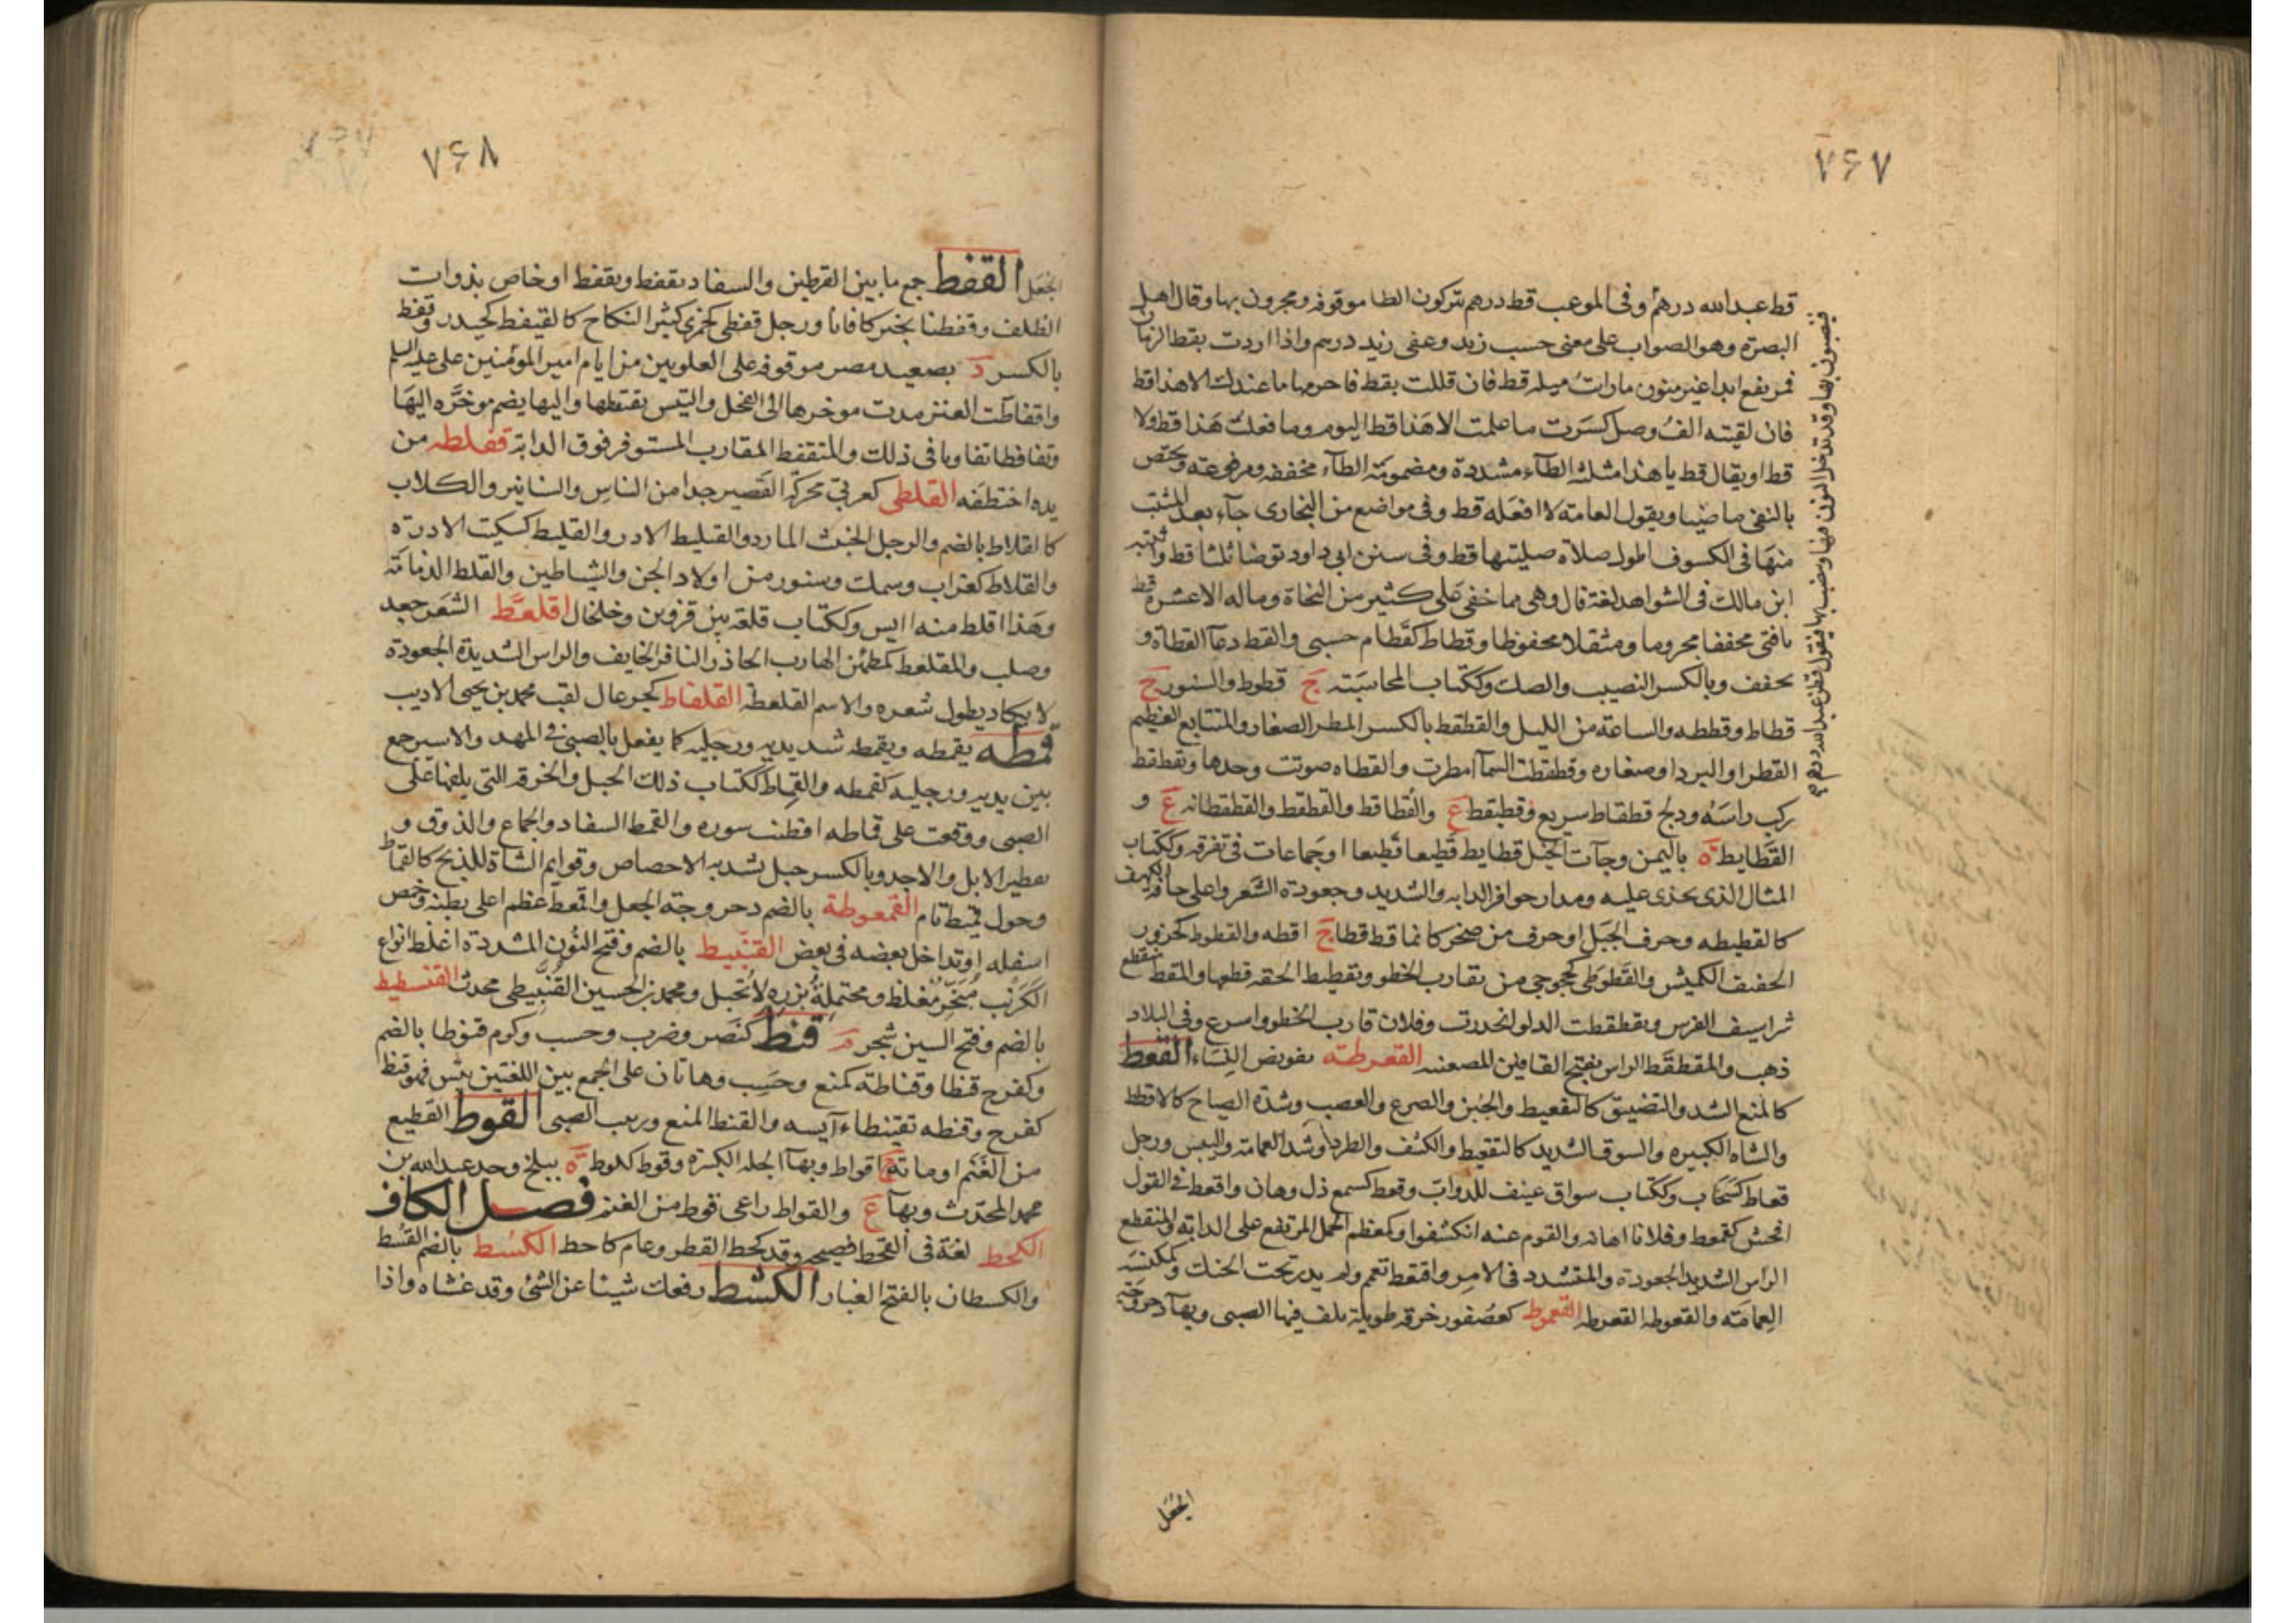 ۷۶۷
قط عبدالله درهم وفى الموعب قط درهم يتركون الطا موقوفه ويجرون بها وقال اهل
البصرة وهو الصواب على معنى حسب زيد وكفى زيد درهم واذا اردت بقط الزمان
فمرتفع ابدا غير منون ما رات مثله قط فان قللت بقط فاجزمها ما عندك الا هذا قط
فان لقيته الف وصل كسرت ما علمت الا هذا قط اليوم وما فعلت هذا قط ولا
قط او يقال قط يا هذا مثلثة الطاء مشددة ومضمومة الطاء مخففه ومرفوعته ويختص
بالنفى ماضيا ويقول العامة لا افعله قط وفى مواضع من البخارى جاء بعد المثبت
منها فى الكسوف اطول صلاة صليتها قط وفى سنن ابى داود توضا ثلثا قط واثبته
ابن مالك فى الشواهد لغة قال وهى مما خفى على كثير من النحاة وماله الا عشرة قط
يا فتى مخففا مجزوما ومثقلا محفوظا وقطاط كقطام حسبى والقط دعاء القطاة و
يخفف وبالكسر النصيب والصك وككتاب المحاسبته ج قطوط والسنور ج
قطاط وقططه والساعة من الليل والقطقط بالكسر المطر الصغار والمتتابع العظيم
القطر او البرد او صغاره وقطقطت السماء امطرت والقطاه صوتت وحدها وتقطقط
ركب راسه ودلج قطقاط سريع وقطيقط ع والقطاقط والقطقط والقطقطانه ع و
القطايط ة باليمن وجآت الخيل قطايط قطيعا قطيعا او جماعات فى تفرقه وككتاب
المثال الذى يحذى عليه ومدار حوافر الدابه والشديد وجعودة الشعر واعلى حافة الكهف
كالقطيطه وحرف الجبل او حرف من صخر كانما قط قطا ج اقطه والقطوط كحزور
الخفيف الكميش والقطوطى كخجوجى من يقارب الخطو وتقطيط الحقه قطعها والمقط منقطع
شراسيف الفرس وتقطقطت الدلو انحدرت وفلان قارب الخطو واسرع وفى البلاد
ذهب والمقطقط الراس بفتح القافين المصعنبه القعرطة تقويض البناء القعط
كالمنع الشد والتضييق كالتقعيط والجبن والصرع والغضب وشدة الصياح كالاقعاط
والشاه الكبيره والسوق الشديد كالتقعيط والكشف والطرد وشد العمامة واليبس ورجل
قعاط كسحاب وككتاب سواق عنيف للدواب وقعط كسمع ذل وهان واقعط فى القول
افحش كقعط وفلانا اهانه والقوم عنه انكشفوا وكمعظم الحمل المرتفع على الدابة والمتقطع
الراس الشديد الجعودة والمتشدد فى الامر واقتعط تعمم ولم يدر تحت الحنك وكمكنسة
العمامة والقعوطه القعرطه القعموط كعصفور خرقه طويلة يلف فيها الصبى وبهاء دحروجة
الجعل
فينصبون بها وقد تدخل النون فيها وينصب بها فيقول قطن عبدالله درهم
۷۶۸
الجعل القفط جمع ما بين القرطين والسفاد يقفط ويقفط او خاص بذوات
الظلف وقفطنا بخير كافانا ورجل قفطى كجمزى كثير النكاح كالقيفط كحيدر وقفط
بالكسر د بصعيد مصر موقوفه على العلويين من ايام امير المومنين على عليه السلم
واقفاطت العنز مدت موخرها الى الفحل والتيس يقتفطها واليها يضم موخره اليها
وتقافطا تعاونا فى ذلك والمتقفط المقارب المستوفز فوق الدابة قفلطه من
يده اختطفه القلطى كعربى محركة القصير جدا من الناس والسنانير والكلاب
كالقلاط بالضم والرجل الخبيث المارد والقليط الادر والقليط كسكيت الادرة
والقلاط كغراب وسمك وسنور من اولاد الجن والشياطين والقلط الدمامة
وهذا اقلط منه آيس وككتاب قلعة بين قزوين وخلخال اقلعط الشعر جعد
وصلب والمقلعط كمطمئن الهارب الحاذر النافر الخايف والراس الشديدة الجعودة
لا يكاد يطول شعره والاسم القلعطة القلفاط كجرعال لقب محمد بن يحيى الاديب
قمطه يقمطه ويقمطه شد يديه ورجليه كما يفعل بالصبى فى المهد والاسير جمع
بين يديه ورجليه كقمطه والقماط ككتاب ذلك الحبل والخرقه التى يلفها على
الصبى ووقعت على قماطه افطنت سوره والقمط السفاد والجماع والذوق و
تقطير الابل والاخذ وبالكسر حبل تشد به الاخصاص وقوايم الشاة للذبح كالقماط
وحول قميط تام القمعوطة بالضم دحروجة الجعل واقمعط عظم اعلى بطنه وخمص
اسفله او تداخل بعضه فى بعض القنبيط بالضم وفتح النون المشددة اغلظ انواع
الكرنب مبخر مغلظ ومحتملة بزره لا تحبل ومحمد بن الحسين القنبيطى محدث القنسطيط
بالضم وفتح السين شجر م قنط كنصر وضرب وحسب وكرم قنوطا بالضم
وكفرح قنطا وقناطة كمنع وحسب وهاتان على الجمع بين اللغتين يئس فهو قنط
كفرح وقنطه تقنيطاء آيسه والقنط المنع وزبيب الصبى القوط القطيع
من الغنم او مائة ج اقواط وبهاء الجله الكبيرة وقوط كلوط ة ببلخ وجد عبدالله بن
محمد المحدث وبهاء ع والقواط راعى قوط من الغنم فصل الكاف
الكحط لغة فى القحط فصيحه وقد كحط القطر وعام كاحط الكسط بالضم القسط
والكسطان بالفتح الغبار الكشط رفعك شيئا عن الشئ وقد غشاه واذا